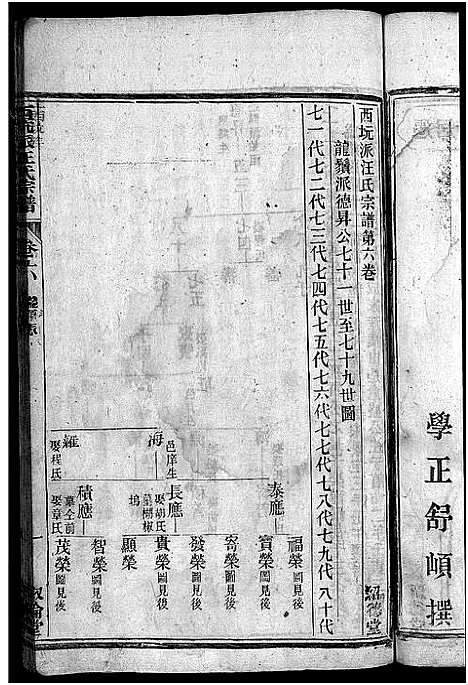 學正舒頔撰
西坃派汪氏宗譜第六卷
龍鬚派德昇公七十一世至七十九世圖
七一代七二代七三代七四代七五代七六代七七代七八代七九代八十代
泰應
福榮圖見後
寶榮圖見後
寄榮圖見後
海
邑庠生
長應
娶胡氏
墓楜椒
塢
發榮圖見後
貴榮圖見後
顯榮
羅
娶程氏
積應
墓全前
娶章氏
智榮圖見後
茂榮圖見後
西坃派汪氏宗譜
卷六